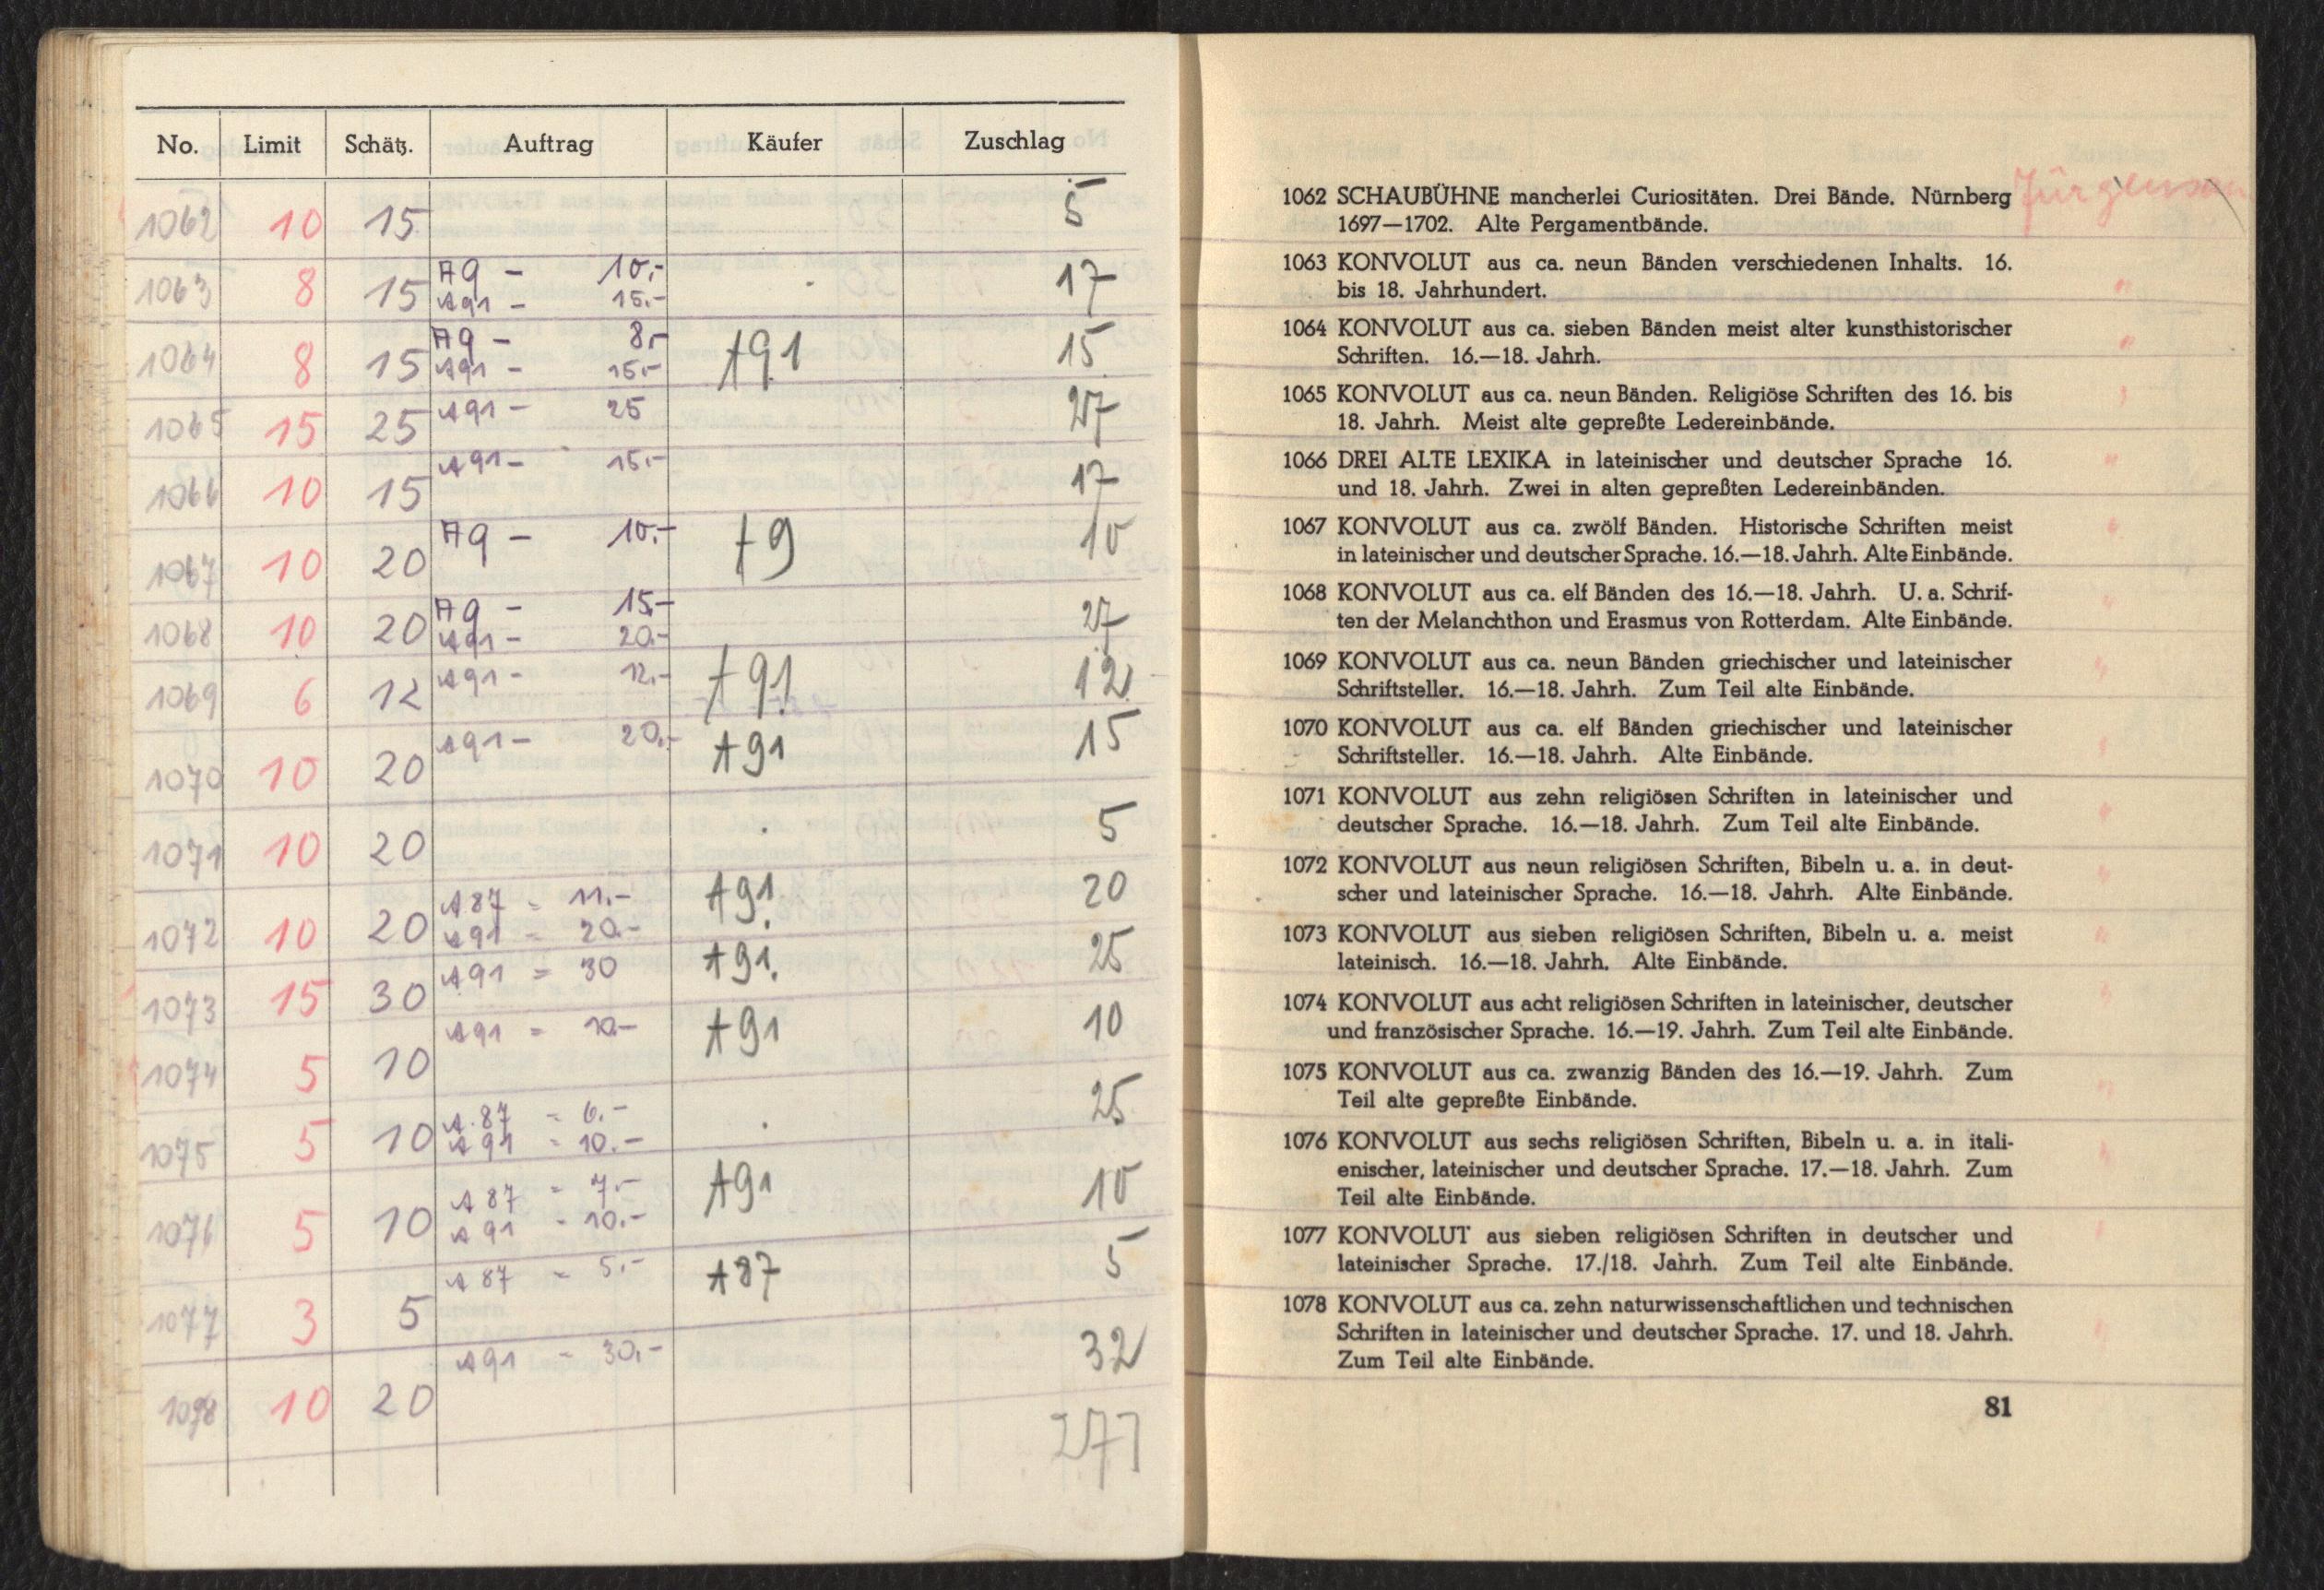 No. Limit Schätz. Auftrag Käufer Zuschlag
1062 10 15 5
1063 8 15 A9 - 10.- 17
A91 - 15.-
1064 8 15 A9 - 8.- A91 15
A91 - 15.-
1065 15 25 A91 - 25 27
1066 10 15 A91 - 15.- 17
1067 10 20 A9 - 10.- A9 10
1068 10 20 A9 - 15.- 27
A91 - 20.-
1069 6 12 A91 - 12.- A91 12
1070 10 20 A91 - 20.- A91 15
1071 10 20 5
1072 10 20 A87 - 11.- A91 20
A91 - 20.-
1073 15 30 A91 = 30 A91 25
1074 5 10 A91 = 10.- A91 10
1075 5 10 A.87 - 6.- 25
A91 - 10.-
1076 5 10 A87 - 7.- A91 10
A91 - 10.-
1077 3 5 A87 - 5.- A87 5
1078 10 20 A91 - 30.- 32
277
1062 SCHAUBÜHNE mancherlei Curiositäten. Drei Bände. Nürnberg Jürgensen
1697—1702. Alte Pergamentbände.
1063 KONVOLUT aus ca. neun Bänden verschiedenen Inhalts. 16. "
bis 18. Jahrhundert.
1064 KONVOLUT aus ca. sieben Bänden meist alter kunsthistorischer "
Schriften. 16.—18. Jahrh.
1065 KONVOLUT aus ca. neun Bänden. Religiöse Schriften des 16. bis "
18. Jahrh. Meist alte gepreßte Ledereinbände.
1066 DREI ALTE LEXIKA in lateinischer und deutscher Sprache 16. "
und 18. Jahrh. Zwei in alten gepreßten Ledereinbänden.
1067 KONVOLUT aus ca. zwölf Bänden. Historische Schriften meist "
in lateinischer und deutscher Sprache. 16.—18. Jahrh. Alte Einbände.
1068 KONVOLUT aus ca. elf Bänden des 16.—18. Jahrh. U. a. Schrif- "
ten der Melanchthon und Erasmus von Rotterdam. Alte Einbände.
1069 KONVOLUT aus ca. neun Bänden griechischer und lateinischer "
Schriftsteller. 16.—18. Jahrh. Zum Teil alte Einbände.
1070 KONVOLUT aus ca. elf Bänden griechischer und lateinischer "
Schriftsteller. 16.—18. Jahrh. Alte Einbände.
1071 KONVOLUT aus zehn religiösen Schriften in lateinischer und "
deutscher Sprache. 16.—18. Jahrh. Zum Teil alte Einbände.
1072 KONVOLUT aus neun religiösen Schriften, Bibeln u. a. in deut- "
scher und lateinischer Sprache. 16.—18. Jahrh. Alte Einbände.
1073 KONVOLUT aus sieben religiösen Schriften, Bibeln u. a. meist "
lateinisch. 16.—18. Jahrh. Alte Einbände.
1074 KONVOLUT aus acht religiösen Schriften in lateinischer, deutscher "
und französischer Sprache. 16.—19. Jahrh. Zum Teil alte Einbände.
1075 KONVOLUT aus ca. zwanzig Bänden des 16.—19. Jahrh. Zum "
Teil alte gepreßte Einbände.
1076 KONVOLUT aus sechs religiösen Schriften, Bibeln u. a. in itali- "
enischer, lateinischer und deutscher Sprache. 17.—18. Jahrh. Zum
Teil alte Einbände.
1077 KONVOLUT aus sieben religiösen Schriften in deutscher und "
lateinischer Sprache. 17./18. Jahrh. Zum Teil alte Einbände.
1078 KONVOLUT aus ca. zehn naturwissenschaftlichen und technischen "
Schriften in lateinischer und deutscher Sprache. 17. und 18. Jahrh.
Zum Teil alte Einbände.
81